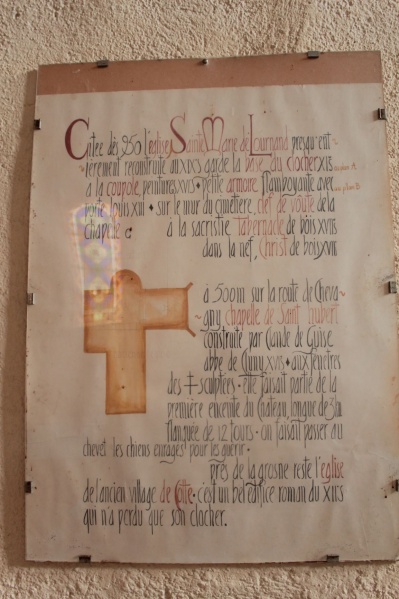 Citée dès 950 l'église Sainte Marie de Lournand presqu'ent
ièrement reconstruite au XIXs garde la base du clocher XIIs
à la coupole, peintures XVIs • petite armoire flamboyante avec
porte Louis XIII • sur le mur du cimetière clef de voûte de la
chapelle C à la sacristie Tabernacle de bois XVIIs
dans la nef, Christ de bois XVIIs
à 500m sur la route de Cheva
gny chapelle de Saint Hubert
construite par Claude de Guise
abbé de Cluny XVIs • aux fenêtres
des ‡ sculptées • elle faisait partie de la
première enceinte du Château, longue de 3km
flanquée de 12 tours • on faisait passer au
chevet les chiens enragés pour les guérir •
près de la grosne reste l'église
de l'ancien village de Cotte • c'est un bel édifice roman du XIIs
qui n'a perdu que son clocher.